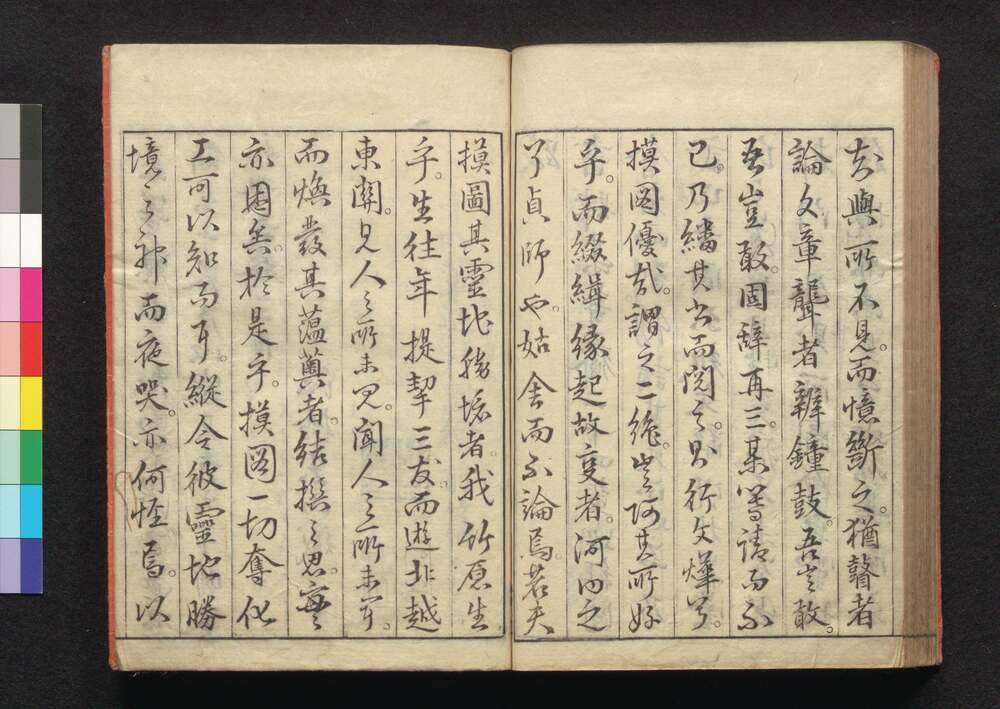 知與所不見。而憶斷之。猶瞽者
論文章聾者辨鐘鼓。吾豈敢。
吾豈敢。固辞再三。某等請而不
已。乃繙其書而閲之。則行文燁
摸图優哉。謂之二絶。豈阿其所好
乎。而綴緝縁起故支者。河内之
了貞師也。姑舍而不論焉。若夫
摸圖其靈地勝境者。我竹原生
乎。生往年提挈三友。而遊北越
東關。見人之所未見。聞人之所未聞。
而煥發其薀奥者。結撰之思。
亦困矣。於是乎。摸图一切奪化
工可以知而耳。縱令彼靈地勝
境之神而夜哭。亦何恠焉。以